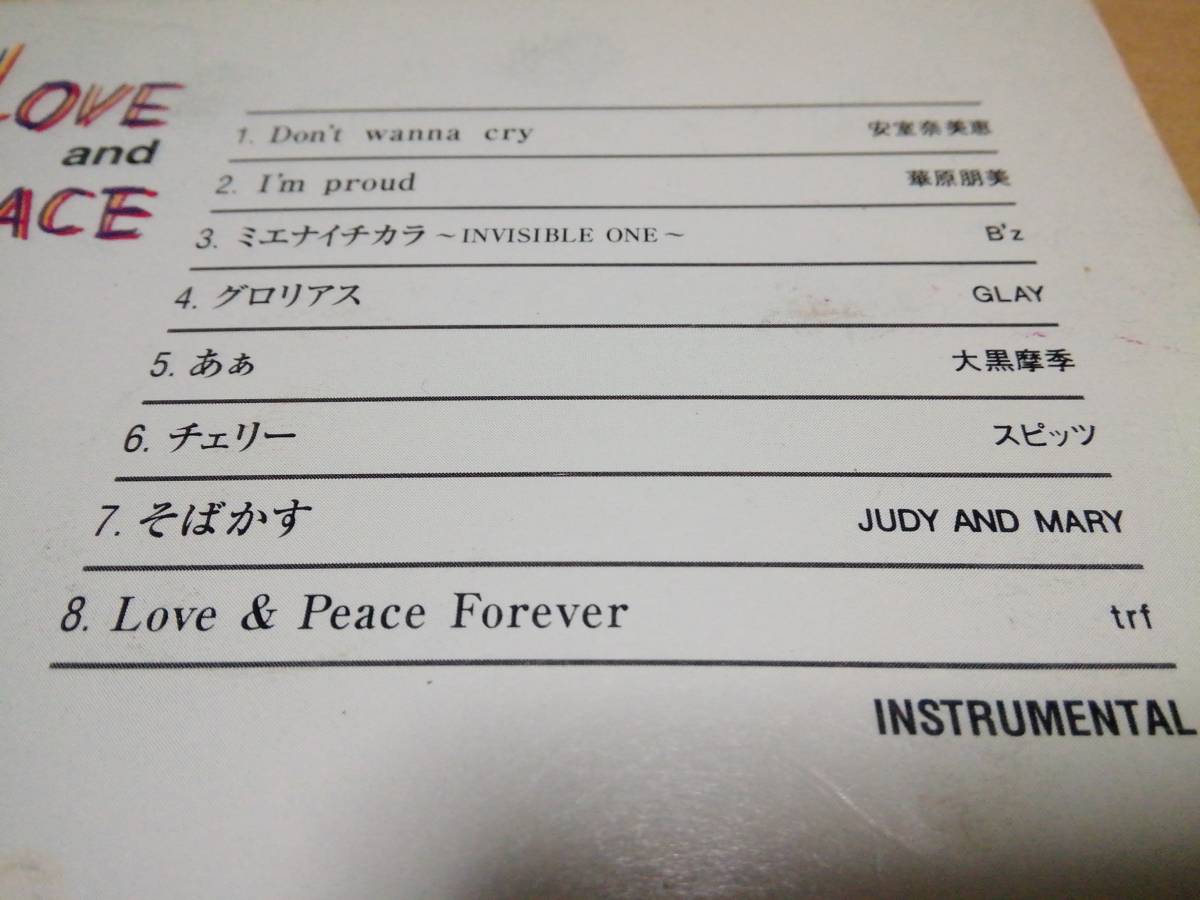 LOVE
and
ACE
1. Don't wanna cry 安室奈美恵
2. I'm proud 華原朋美
3. ミエナイチカラ ～INVISIBLE ONE～ B'z
4. グロリアス GLAY
5. あぁ 大黒摩季
6. チェリー スピッツ
7. そばかす JUDY AND MARY
8. Love & Peace Forever trf
INSTRUMENTAL